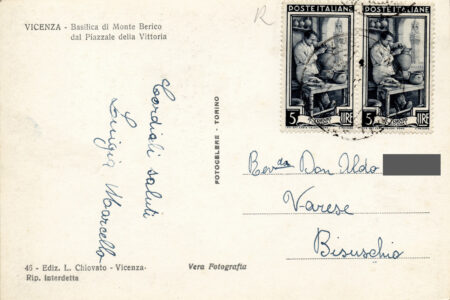 VICENZA - Basilica di Monte Berico
dal Piazzale della Vittoria
Cordiali saluti
Luigia Marcello
FOTOCELERE - TORINO
R
POSTE ITALIANE
5 LIRE
POSTE ITALIANE
5 LIRE
Revdo Don Aldo
Varese
Bisuschio
46 - Ediz. L. Chiovato - Vicenza-
Rip. interdetta
Vera Fotografia